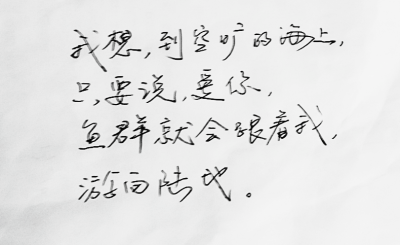 我想，到空旷的海上，
只要说，爱你，
鱼群就会跟着我，
游向陆地。